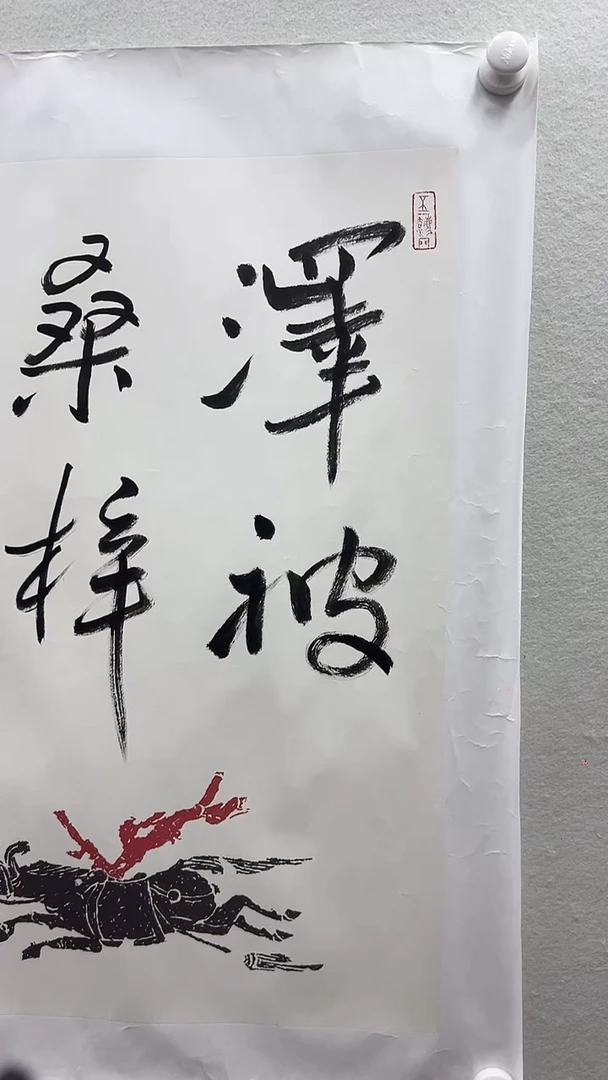 澤被
桑梓